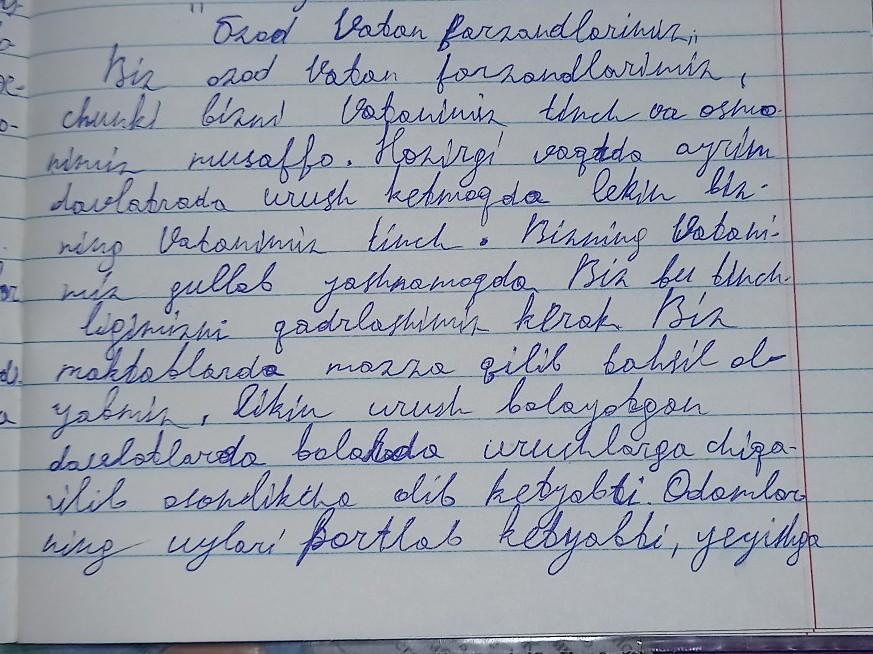 "Ozod Vatan farzandlarimiz"
Biz ozod Vatan farzandlarimiz,
chunki bizni Vatanimiz tinch va osmo-
nimiz musaffo. Hozirgi vaqtda ayrim
davlatrada urush ketmoqda lekin biz-
ning Vatanimiz tinch. Bizning Vatani-
miz gullab yashnamoqda Biz bu tinch-
ligimizni qadrlashimiz kerak Biz
maktablarda mazza qilib tahsil ol-
yabmiz, likin urush bolayotgan
davlatlarda bolalada urushlarga chiqa-
rilib osondiktha olib ketyabti. Odamlar
ning uylari portlab ketyabti, yeyishga